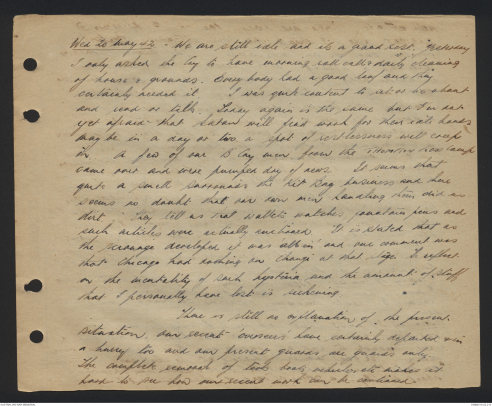 Wed 20 May 42 - We are still idle and its a good rest. Yesterday
I only asked the Coy to have morning roll call & daily cleaning
of house & grounds. Every body had a good day and they
certainly needed it. I was quite content to sit or lie about
and read or talk. Today again is the same but I'm not
yet afraid that Satan will find work for these idle hands
may be in a day or two a spot of restlessness will creep
in. A few of our B Coy men from the Camp
came over and were pumped dry of news. It seems that
quite a smell surrounds the Kit Bag business and there
seems no doubt that our own men handling them did us
dirt. They tell us that wallets watches, fountain pens and
such articles were actually auctioned. It is stated that as
the scrounge developed it was 'all in' and one comment was
that Chicago had nothing on Changi at that stage. To reflect
on the mentality of such hysteria and the amount of stuff
that I personally have lost is sickening.
There is still no explanation of the present
situation, our recent 'overseers' have certainly departed & in
a hurry too and our present guards are guards only.
The complete removal of tools boats vehicles etc makes it
hard to see how our recent work can be continued.